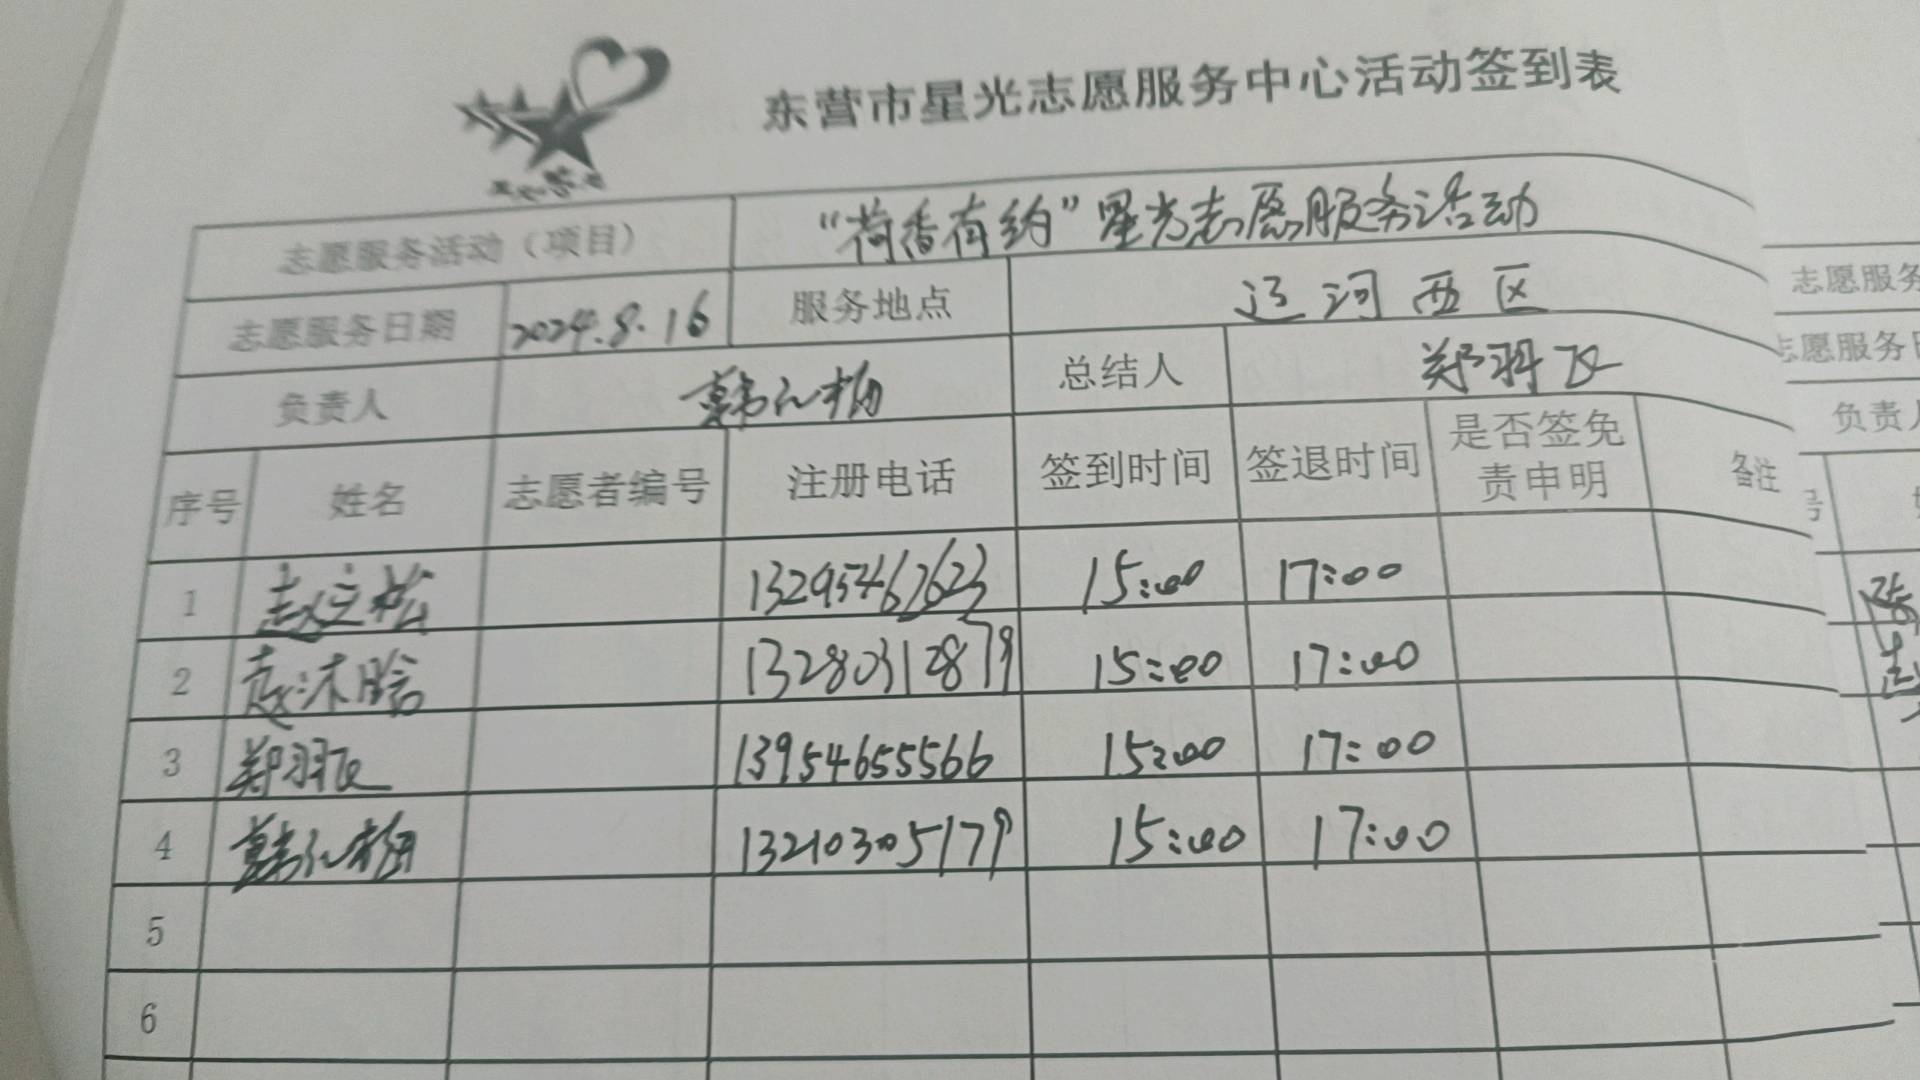 东营市星光志愿服务中心活动签到表
志愿服务活动（项目） “荷香有约”星光志愿服务活动
志愿服务日期 2024.8.16 服务地点 辽河西区
负责人 总结人 郑羽飞
序号 姓名 志愿者编号 注册电话 签到时间 签退时间 是否签免责申明 备注
1 赵立松 13295467623 15:00 17:00
2 赵沐晗 13280312879 15:00 17:00
3 郑羽飞 13954655566 15:00 17:00
4 13210305179 15:00 17:00
5
6
志愿服务
志愿服务日
负责人
号